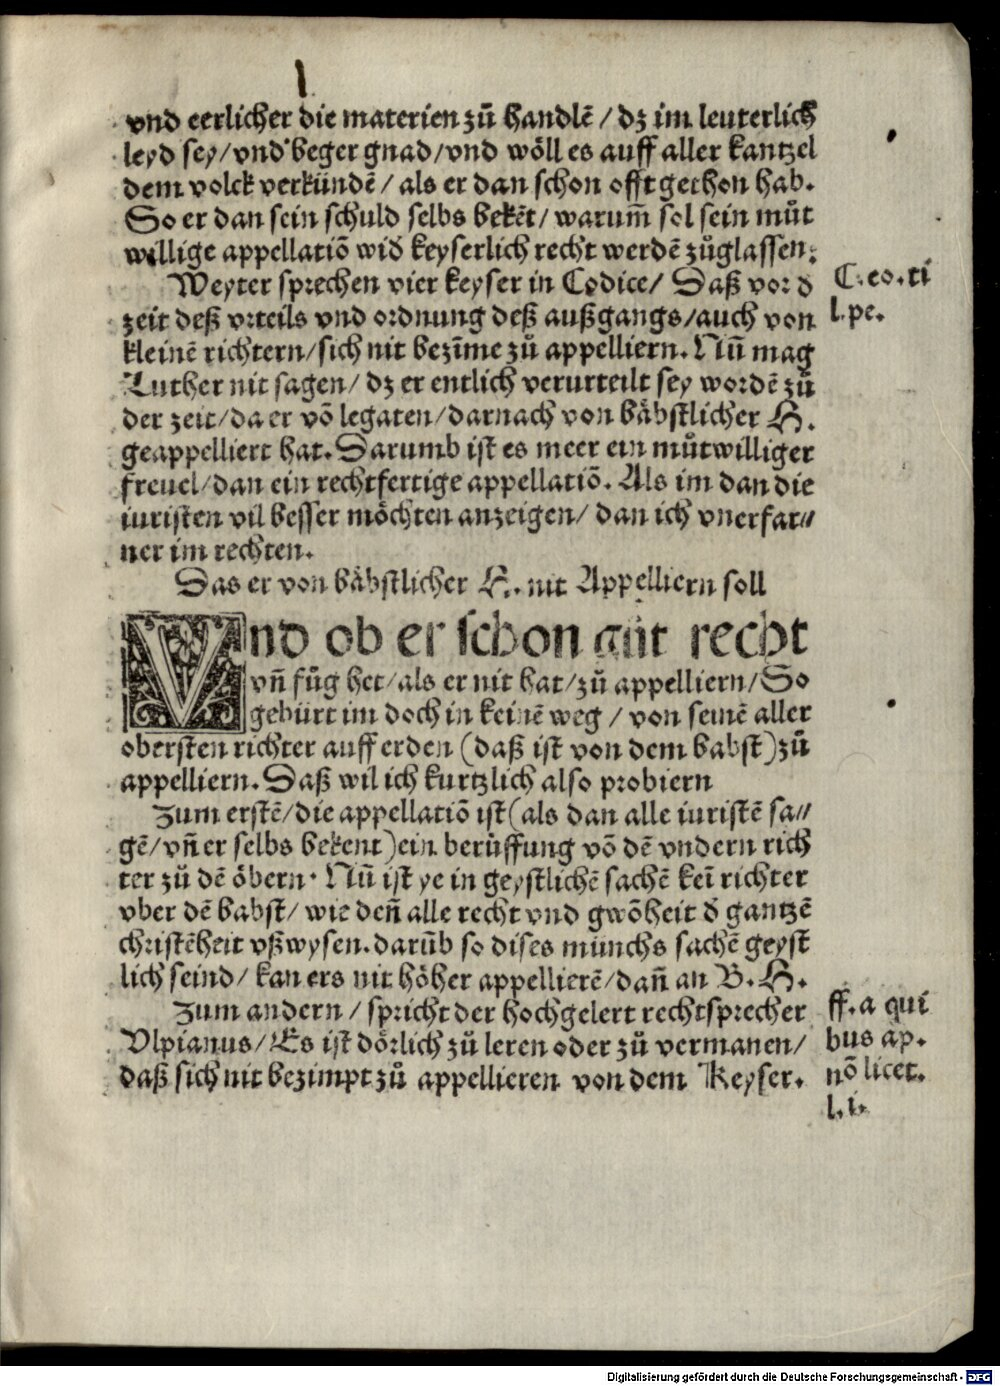 vnd eerlicher die materien zů handlē / dz im leuterlich
leyd sey / vnd beger gnad / vnd wöll es auff aller kantzel
dem volck verkündē / als er dan schon offt gethon hab.
So er dan sein schuld selbs bekēt / warum̄ sol sein můt
willige appellatiō wid keyserlich recht werdē zůglassen.
Weyter sprechen vier keyser in Codice / Daß vor d
C. eo. ti
zeit deß vrteils vnd ordnung deß außgangs / auch von
l. pe.
kleinē richtern / sich nit bezīme zů appelliern. Nū mag
Luther nit sagen / dz er entlich verurteilt sey wordē zů
der zeit / da er vō legaten / darnach von bäbstlicher H.
geappelliert hat. Darumb ist es meer ein můtwilliger
freuel / dan ein rechtfertige appellatiō. Als im dan die
iuristen vil besser möchten anzeigen / dan ich vnerfar⸗
ner im rechten.
Das er von bäbstlicher H. nit Appelliern soll
Vnd ob er schon gůt recht
vn̄ fůg het / als er nit hat / zů appelliern / So
gebürt im doch in keinē weg / von seinē aller
obersten richter auff erden (daß ist von dem babst) zů
appelliern. Daß wil ich kurtzlich also probiern
Zum erstē / die appellatiō ist (als dan alle iuristē sa⸗
gē / vn̄ er selbs bekent) ein berüffung vō dē vndern rich
ter zů dē öbern. Nū ist ye in geystlichē sachē keī richter
vber dē babst / wie den̄ alle recht vnd gwōheit d̄ gantzē
christēheit vßwysen. darūb so dises münchs sachē geyst
lich seind / kan ers nit höher appellierē / dan̄ an B. H.
Zum andern / spricht der hochgelert rechtsprecher
ff. a qui
Vlpianus / Es ist dörlich zů leren oder zů vermanen /
bus ap.
daß sich nit bezimpt zů appellieren von dem Keyser.
nō licet.
l. i.
Digitalisierung gefördert durch die Deutsche Forschungsgemeinschaft - DFG